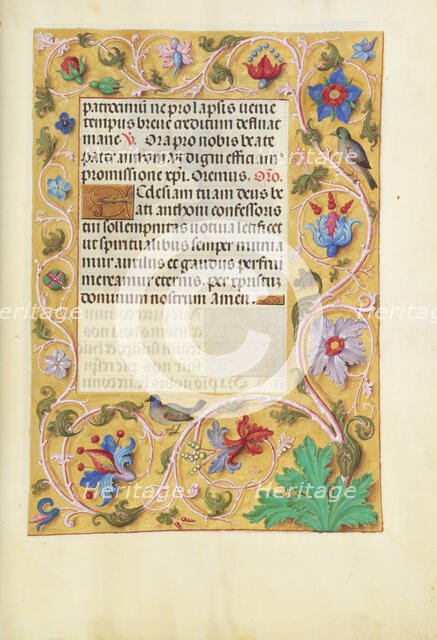 patrociniũ ne prolapsis ueníe
tempus breue creditum defluat
mane V. Ora pro nobis beate
pater anthoni ut digni efficiamur
promissione xp̃i. Oremus. Oro.
Eclesiam tuam deus be
ati anthonii confessoris
tui sollempnitas uotiua letificet
ut spiritualibus semper munia
mur auxiliis et gaudiis perfrui
mereamur eternis. per xpristum
dominum nostrum amen.
Heritage
Heritage
Heritage
Heritage
Heritage